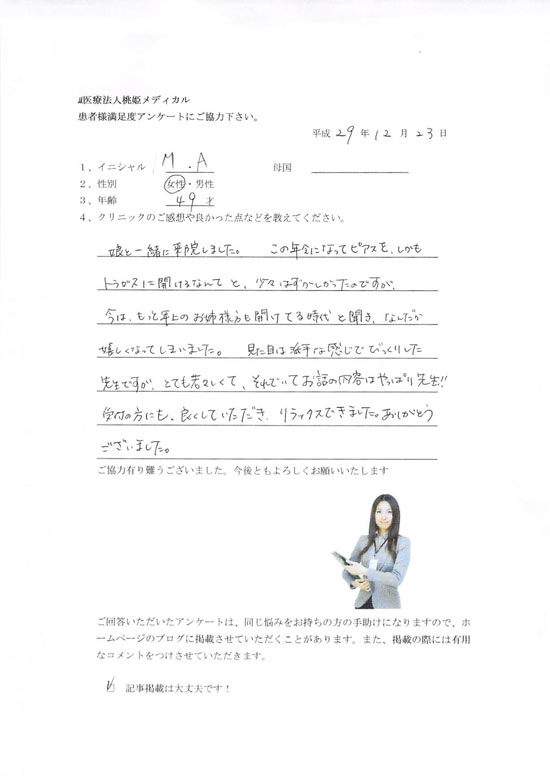 医療法人桃姫メディカル
患者様満足度アンケートにご協力下さい。
平成 29 年 12 月 23 日
1、イニシャル M . A 母国
2、性別 女性・男性
3、年齢 49 才
4、クリニックのご感想や良かった点などを教えてください。
娘と一緒に来院しました。 この年令になってピアスを、しかも
トラガスに開けるなんてと、少々はずかしかったのですが、
今は、もっと年上のお姉様方も開けてる時代と聞き、なんだか
嬉しくなってしまいました。 見た目は派手な感じでびっくりした
先生ですが、とても若々しくて、それでいてお話の内容はやっぱり先生!!
受付の方にも、良くしていただき、リラックスできました。ありがとう
ございました。
ご協力有り難うございました。今後ともよろしくお願いいたします
ご回答いただいたアンケートは、同じ悩みをお持ちの方の手助けになりますので、ホ
ームページのブログに掲載させていただくことがあります。また、掲載の際には有用
なコメントをつけさせていただきます。
記事掲載は大丈夫です！